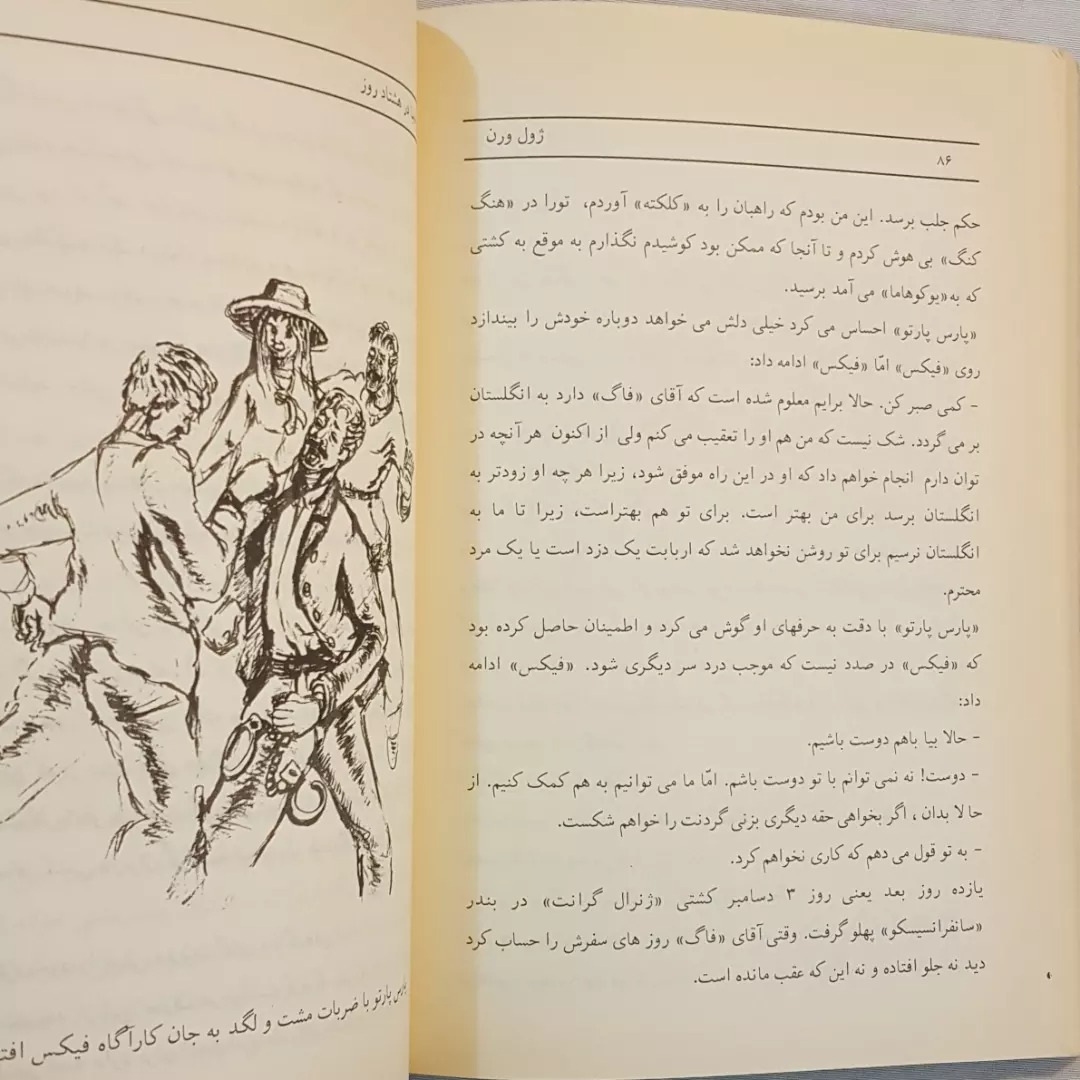 ژول ورن
۸۶
حکم جلب برسد. این من بودم که راهبان را به «کلکته» آوردم، تورا در «هنگ
کنگ» بی هوش کردم و تا آنجا که ممکن بود کوشیدم نگذارم به موقع به کشتی
که به«یوکوهاما» می آمد برسید.
«پارس پارتو» احساس می کرد خیلی دلش می خواهد دوباره خودش را بیندازد
روی «فیکس» امّا «فیکس» ادامه داد:
- کمی صبر کن. حالا برایم معلوم شده است که آقای «فاگ» دارد به انگلستان
بر می گردد. شک نیست که من هم او را تعقیب می کنم ولی از اکنون هر آنچه در
توان دارم انجام خواهم داد که او در این راه موفق شود، زیرا هر چه او زودتر به
انگلستان برسد برای من بهتر است. برای تو هم بهتراست، زیرا تا ما به
انگلستان نرسیم برای تو روشن نخواهد شد که اربابت یک دزد است یا یک مرد
محترم.
«پارس پارتو» با دقت به حرفهای او گوش می کرد و اطمینان حاصل کرده بود
که «فیکس» در صدد نیست که موجب درد سر دیگری شود. «فیکس» ادامه
داد:
- حالا بیا باهم دوست باشیم.
- دوست! نه نمی توانم با تو دوست باشم. امّا ما می توانیم به هم کمک کنیم. از
حالا بدان ، اگر بخواهی حقه دیگری بزنی گردنت را خواهم شکست.
- به تو قول می دهم که کاری نخواهم کرد.
یازده روز بعد یعنی روز ۳ دسامبر کشتی «ژنرال گرانت» در بندر
«سانفرانسیسکو» پهلو گرفت. وقتی آقای «فاگ» روز های سفرش را حساب کرد
دید نه جلو افتاده و نه این که عقب مانده است.
در هشتاد روز
پارس پارتو با ضربات مشت و لگد به جان کارآگاه فیکس